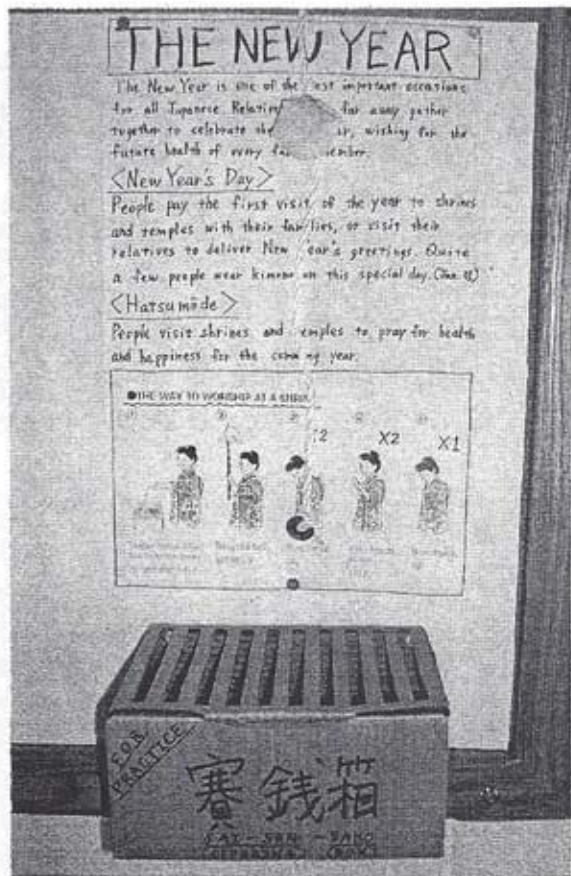 THE NEW YEAR
The New Year is one of the most important occasions
for all Japanese. far away gather
together to celebrate the wishing for the
future health of every
<New Year's Day>
People pay the first visit of the year to shrines
and temples with their families, or visit their
relatives to deliver New Year's greetings. Quite
a few people wear kimono on this special day.
<Hatsumōde>
People visit shrines and temples to pray for health
and happiness for the coming year.
●THE WAY TO WORSHIP AT A SHRINE
X2
X1
F.O.B.
PRACTICE
賽銭箱
SAI-SEN-BAKO